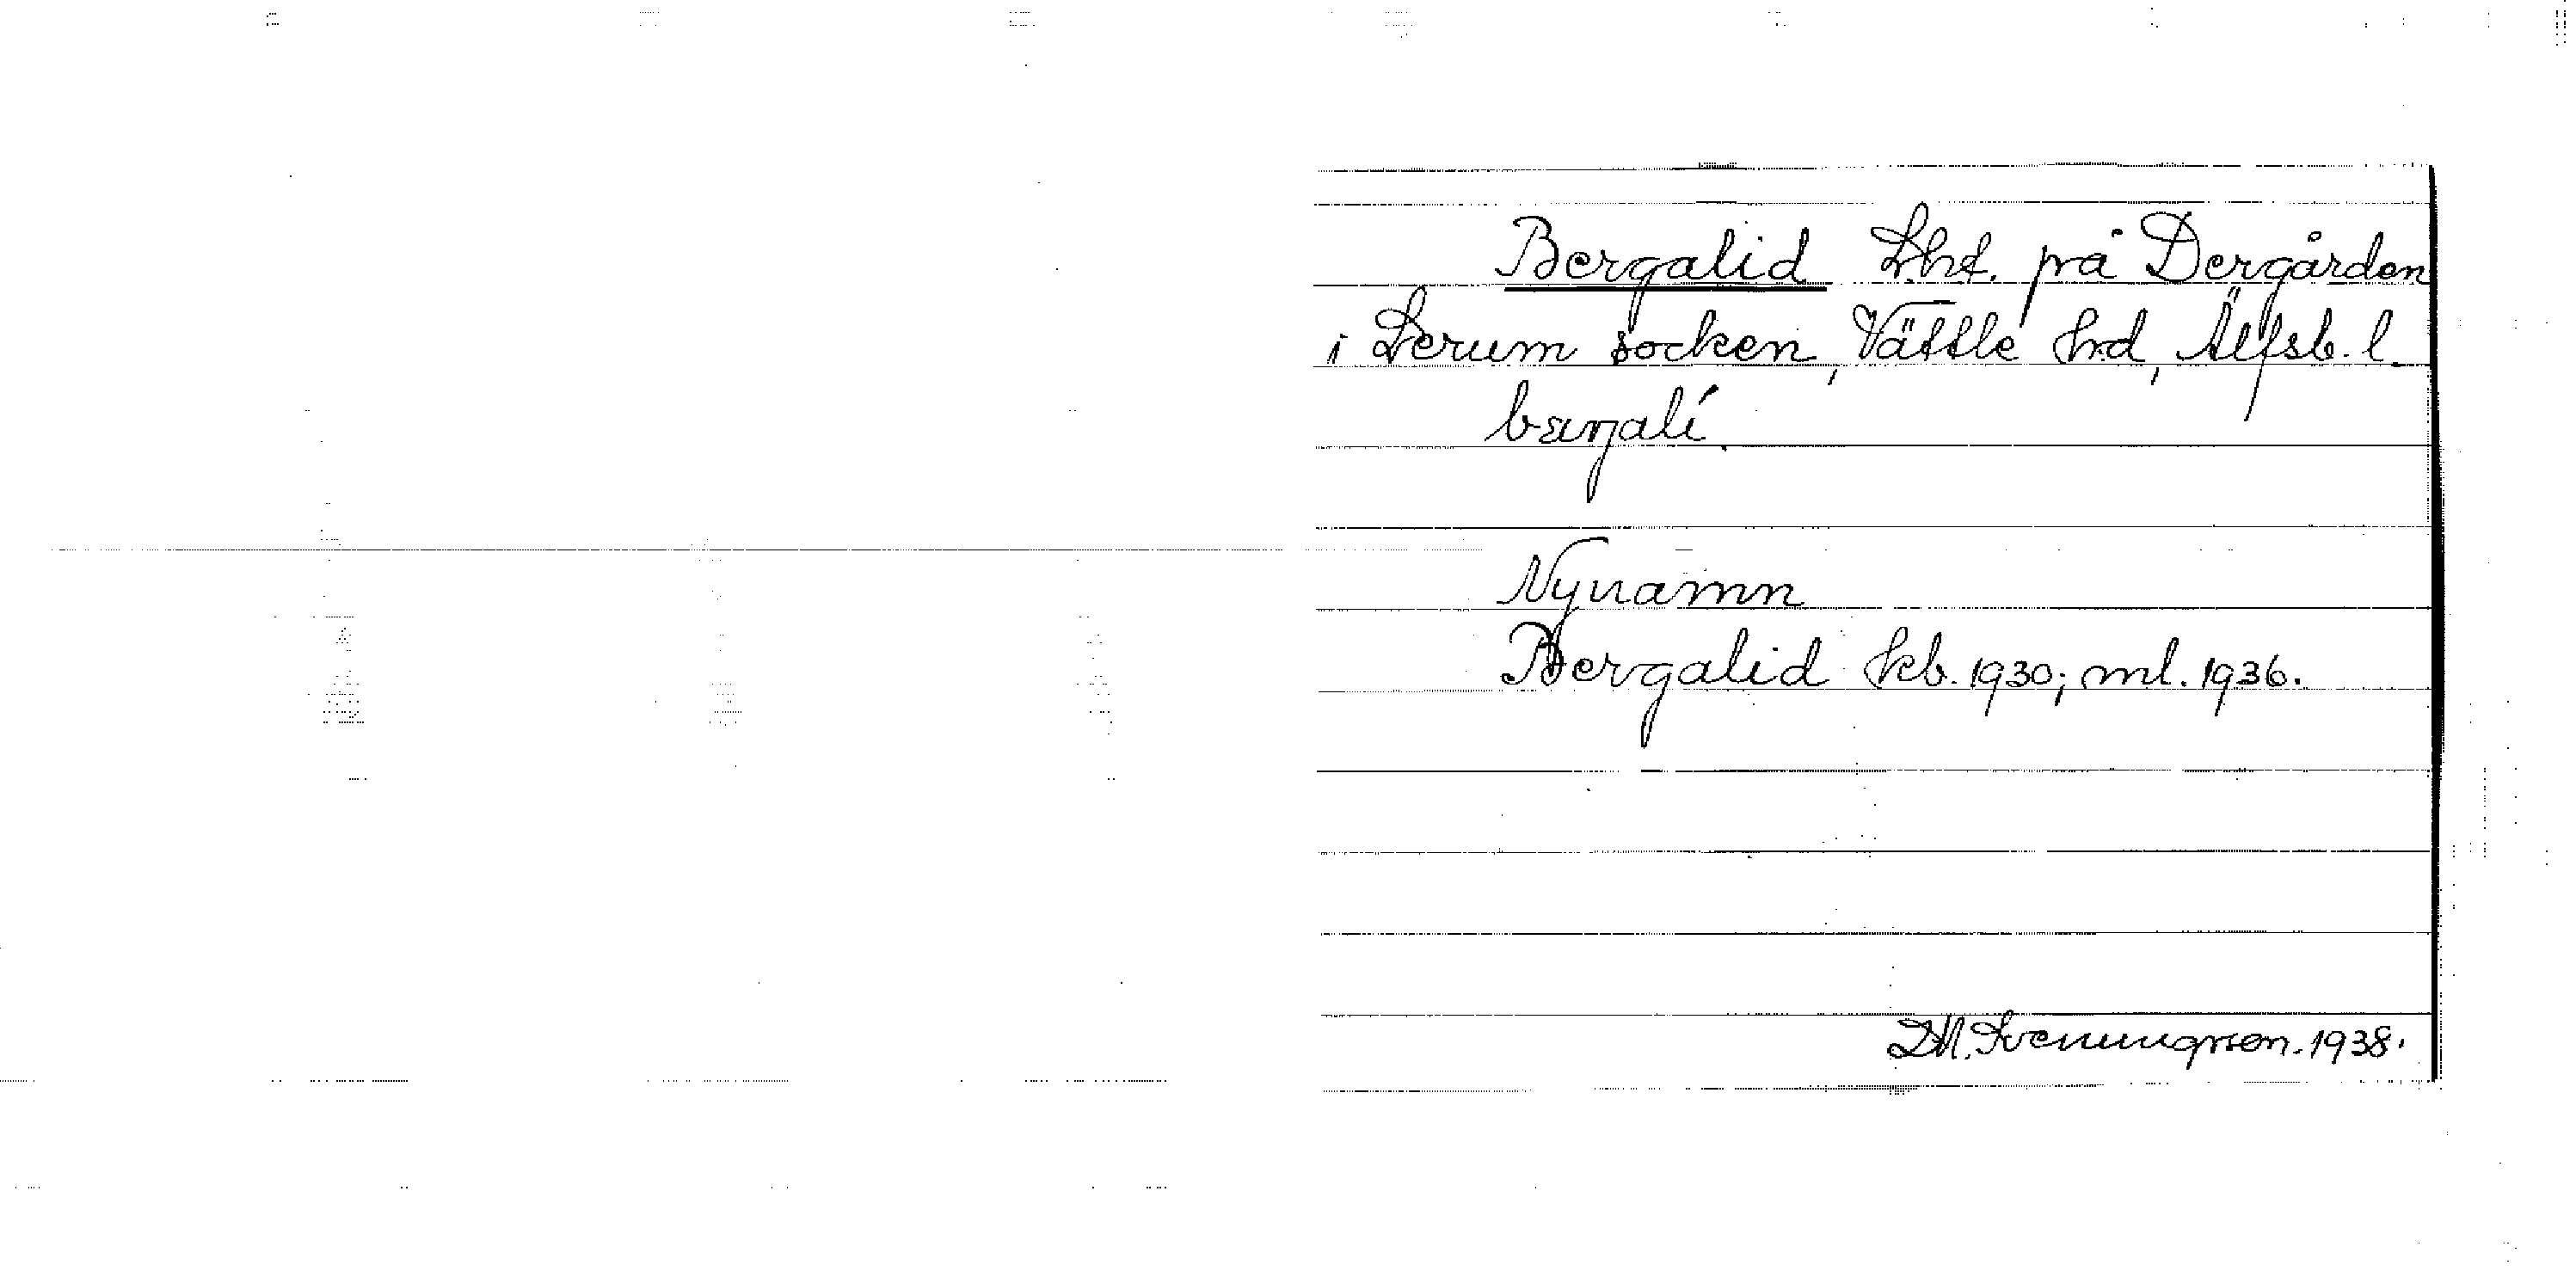 Bergalid Lht. på Dergården
i Lerum socken, Vättle hd, Älfsb. l.
bærjalí.
Nynamn
Bergalid kb. 1930; ml. 1936.
D.M. 1938.